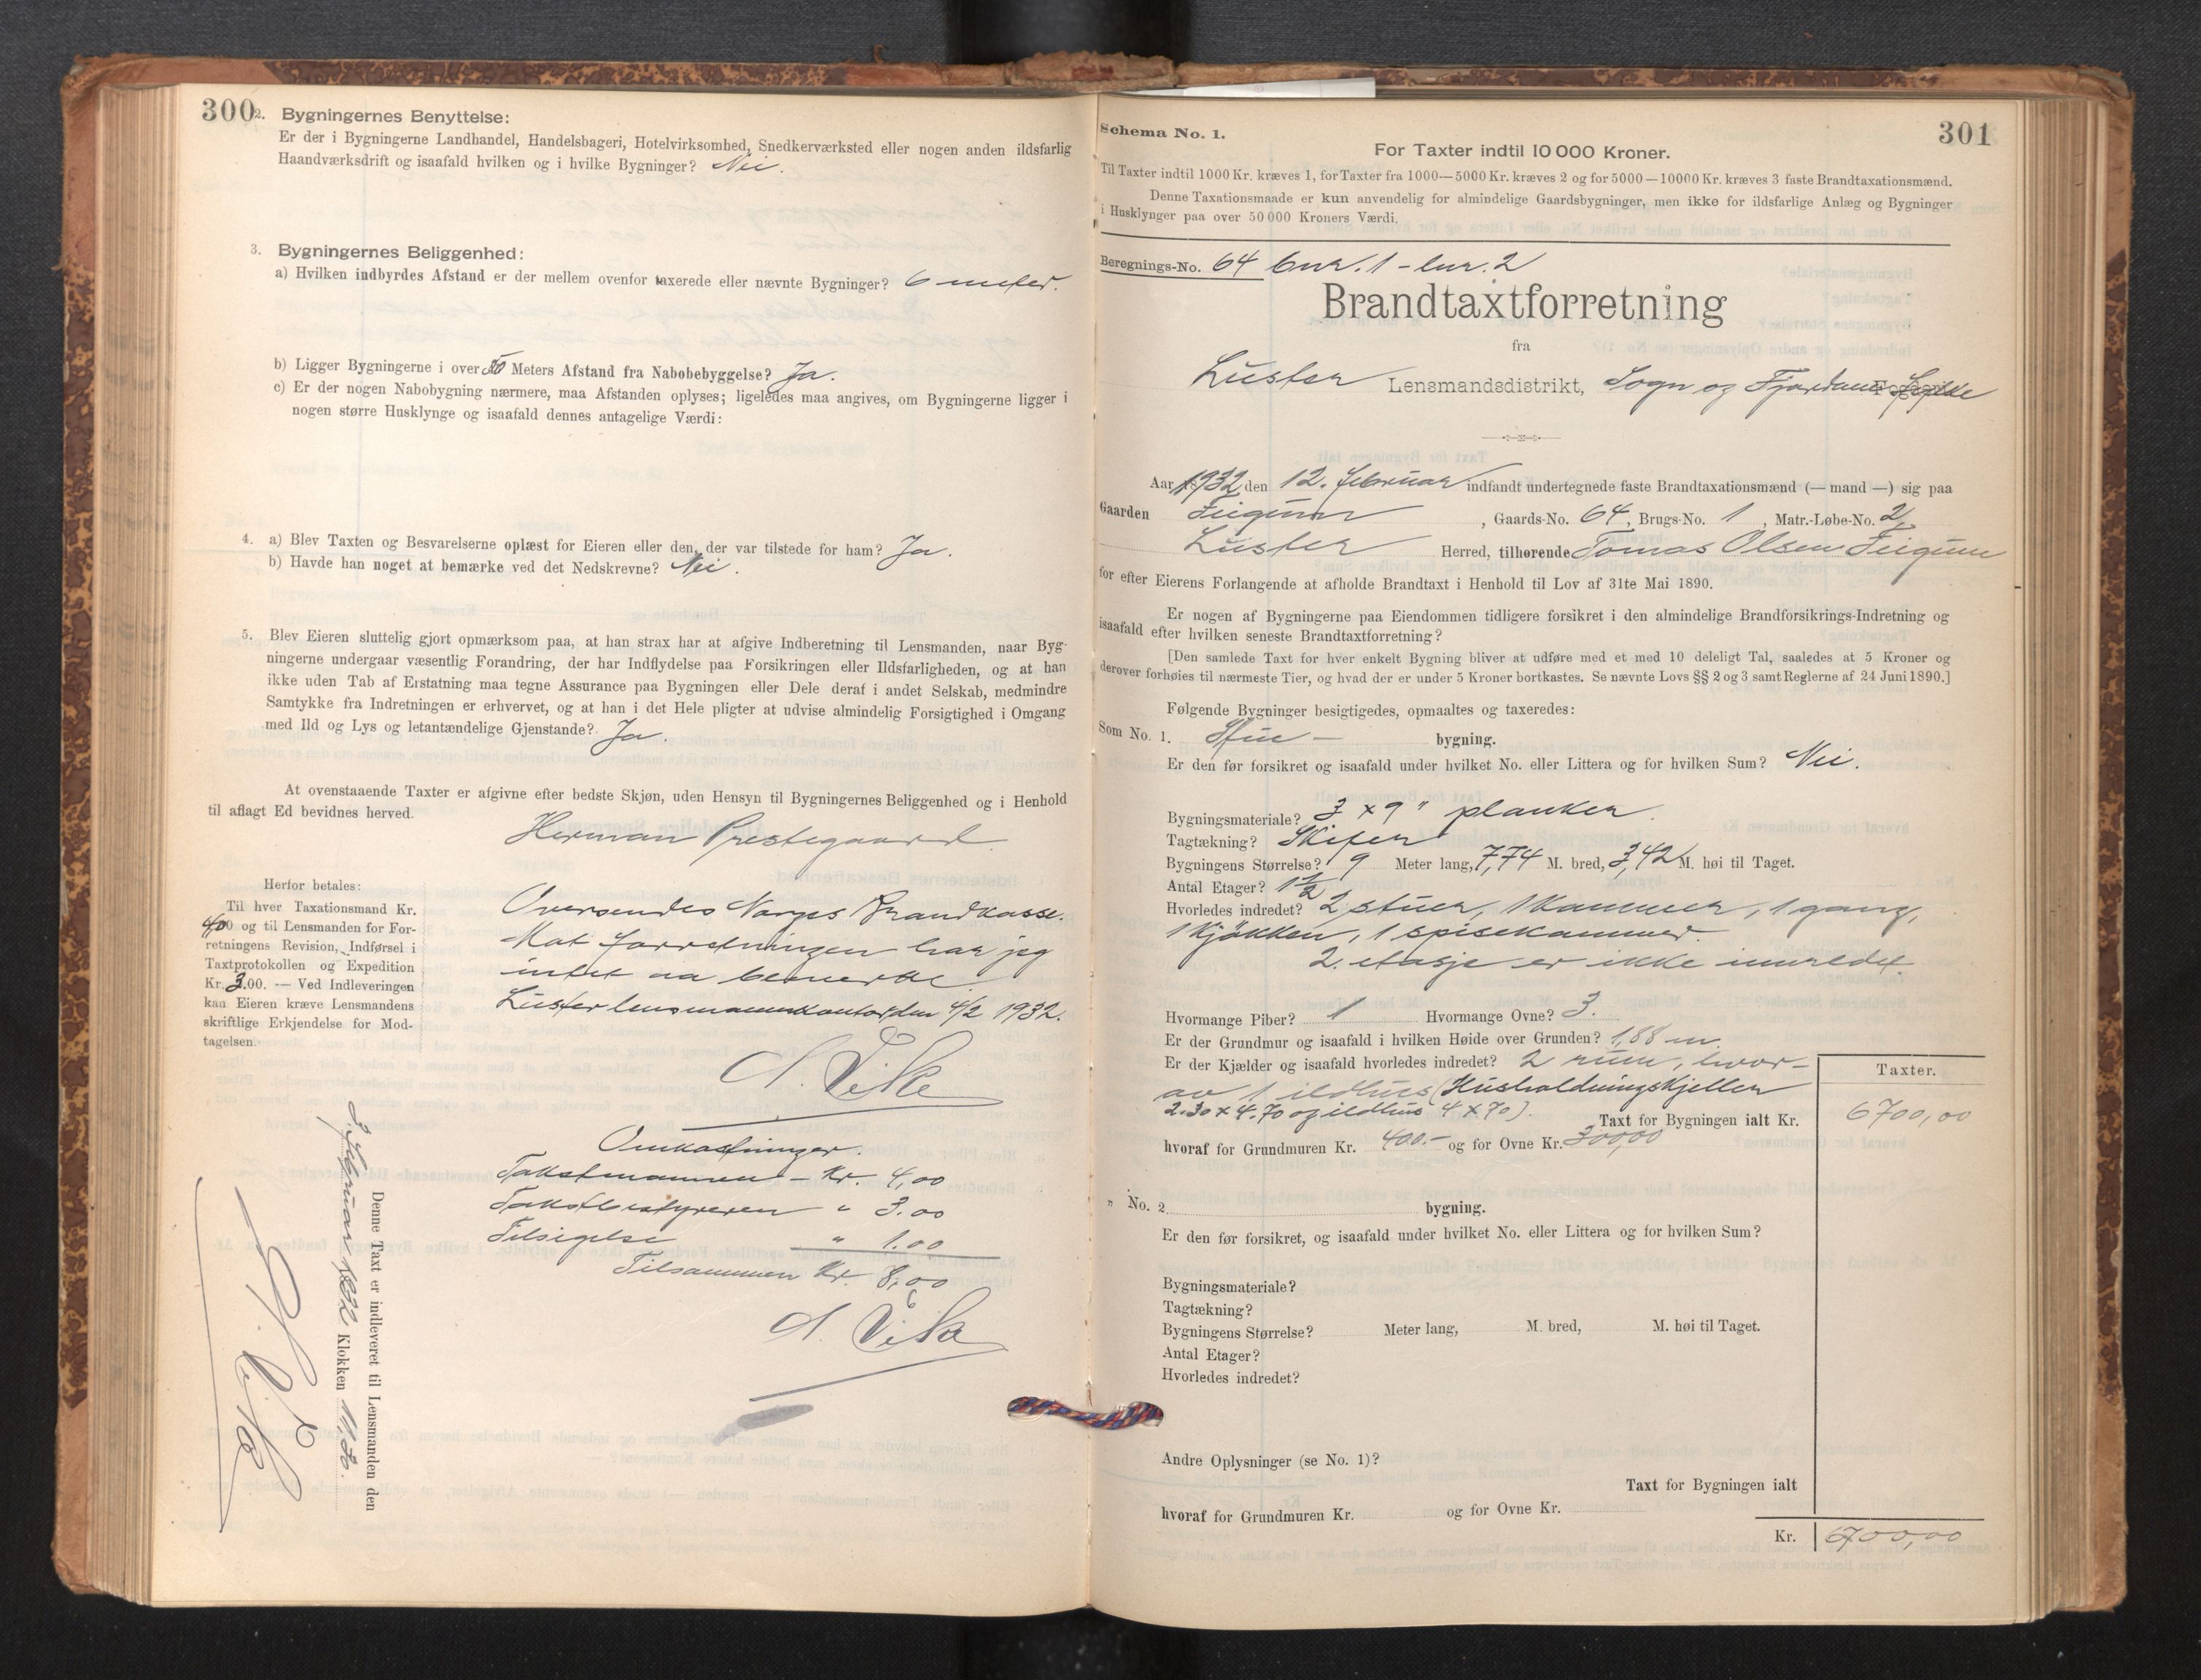 300
2. Bygningernes Benyttelse:
Er der i Bygningerne Landhandel, Handelsbageri, Hotelvirksomhed, Snedkerværksted eller nogen anden ildsfarlig
Haandværksdrift og isaafald hvilken og i hvilke Bygninger? Nei.
3. Bygningernes Beliggenhed:
a) Hvilken indbyrdes Afstand er der mellem ovenfor taxerede eller nævnte Bygninger? 6 meter.
b) Ligger Bygningerne i over 50 Meters Afstand fra Nabobebyggelse? Ja.
c) Er der nogen Nabobygning nærmere, maa Afstanden oplyses; ligeledes maa angives, om Bygningerne ligger i
nogen større Husklynge og isaafald dennes antagelige Værdi:
4. a) Blev Taxten og Besvarelserne oplæst for Eieren eller den, der var tilstede for ham? Ja.
b) Havde han noget at bemærke ved det Nedskrevne? Nei.
5. Blev Eieren sluttelig gjort opmærksom paa, at han strax har at afgive Indberetning til Lensmanden, naar Byg-
ningerne undergaar væsentlig Forandring, der har Indflydelse paa Forsikringen eller Ildsfarligheden, og at han
ikke uden Tab af Erstatning maa tegne Assurance paa Bygningen eller Dele deraf i andet Selskab, medmindre
Samtykke fra Indretningen er erhvervet, og at han i det Hele pligter at udvise almindelig Forsigtighed i Omgang
med Ild og Lys og letantændelige Gjenstande? Ja.
At ovenstaaende Taxter er afgivne efter bedste Skjøn, uden Hensyn til Bygningernes Beliggenhed og i Henhold
til aflagt Ed bevidnes herved.
Herman Prestegaard
Herfor betales:
Til hver Taxationsmand Kr.
4,00 og til Lensmanden for For-
retningens Revision, Indførsel i
Taxtprotokollen og Expedition
Kr. 3.00. — Ved Indleveringen
kan Eieren kræve Lensmandens
skriftlige Erkjendelse for Mod-
tagelsen.
Oversendes Norges Brandkasse.
Mot forretningen har jeg
intet aa bemerke.
Luster lensmannskontor, den 4/2 1932.
A. Vike
Omkostninger.
Takstmannen - Kr. 4,00
Takstbestyreren " 3.00
Tilsigelse " 1.00
Tilsammen Kr. 8,00
A. Vike
Denne Taxt er indleveret til Lensmanden den
3. februar 1932 Klokken 11,30.
A. Vike
301
Schema No. 1.
For Taxter indtil 10 000 Kroner.
Til Taxter indtil 1000 Kr. kræves 1, for Taxter fra 1000—5000 Kr. kræves 2 og for 5000—10000 Kr. kræves 3 faste Brandtaxationsmænd.
Denne Taxationsmaade er kun anvendelig for almindelige Gaardsbygninger, men ikke for ildsfarlige Anlæg og Bygninger
i Husklynger paa over 50 000 Kroners Værdi.
Beregnings-No. 64 bnr. 1 - lnr. 2
Brandtaxtforretning
fra
Luster Lensmandsdistrikt, Sogn og Fjordane Fylke
Aar 1932 den 12. februar indfandt undertegnede faste Brandtaxationsmænd (— mand —) sig paa
Gaarden Feigum, Gaards-No. 64, Brugs-No. 1, Matr.-Løbe-No. 2,
Luster Herred, tilhørende Tomas Olsen Feigum
for efter Eierens Forlangende at afholde Brandtaxt i Henhold til Lov af 31te Mai 1890.
Er nogen af Bygningerne paa Eiendommen tidligere forsikret i den almindelige Brandforsikrings-Indretning og
isaafald efter hvilken seneste Brandtaxtforretning?
[Den samlede Taxt for hver enkelt Bygning bliver at udføre med et med 10 deleligt Tal, saaledes at 5 Kroner og
derover forhøies til nærmeste Tier, og hvad der er under 5 Kroner bortkastes. Se nævnte Lovs §§ 2 og 3 samt Reglerne af 24 Juni 1890.]
Følgende Bygninger besigtigedes, opmaaltes og taxeredes:
Som No. 1. Stue - bygning.
Er den før forsikret og isaafald under hvilket No. eller Littera og for hvilken Sum? Nei.
Bygningsmateriale? 3 x 9" planker.
Tagtækning? Skifer
Bygningens Størrelse? 9 Meter lang, 7,74 M. bred, 3,42 M. høi til Taget.
Antal Etager? 1 1/2
Hvorledes indredet? 2 stuer, 1 kammer, 1 gang,
1 kjøkken, 1 spisekammer.
2. etasje er ikke innredet.
Hvormange Piber? 1 Hvormange Ovne? 3.
Er der Grundmur og isaafald i hvilken Høide over Grunden? 1,88 m.
Er der Kjælder og isaafald hvorledes indredet? 2 rum, hvor-
av 1 ildhus (Husholdningskjeller
2.30 x 4.70 og ildhus 4 x 70).
Taxter.
Taxt for Bygningen ialt Kr. 6700,00
hvoraf for Grundmuren Kr. 400.- og for Ovne Kr. 300,00
" No. 2 bygning.
Er den før forsikret, og isaafald under hvilket No. eller Littera og for hvilken Sum?
Bygningsmateriale?
Tagtækning?
Bygningens Størrelse? Meter lang, M. bred, M. høi til Taget.
Antal Etager?
Hvorledes indredet?
Andre Oplysninger (se No. 1)?
Taxt for Bygningen ialt
hvoraf for Grundmuren Kr. og for Ovne Kr.
Kr. 6700,00